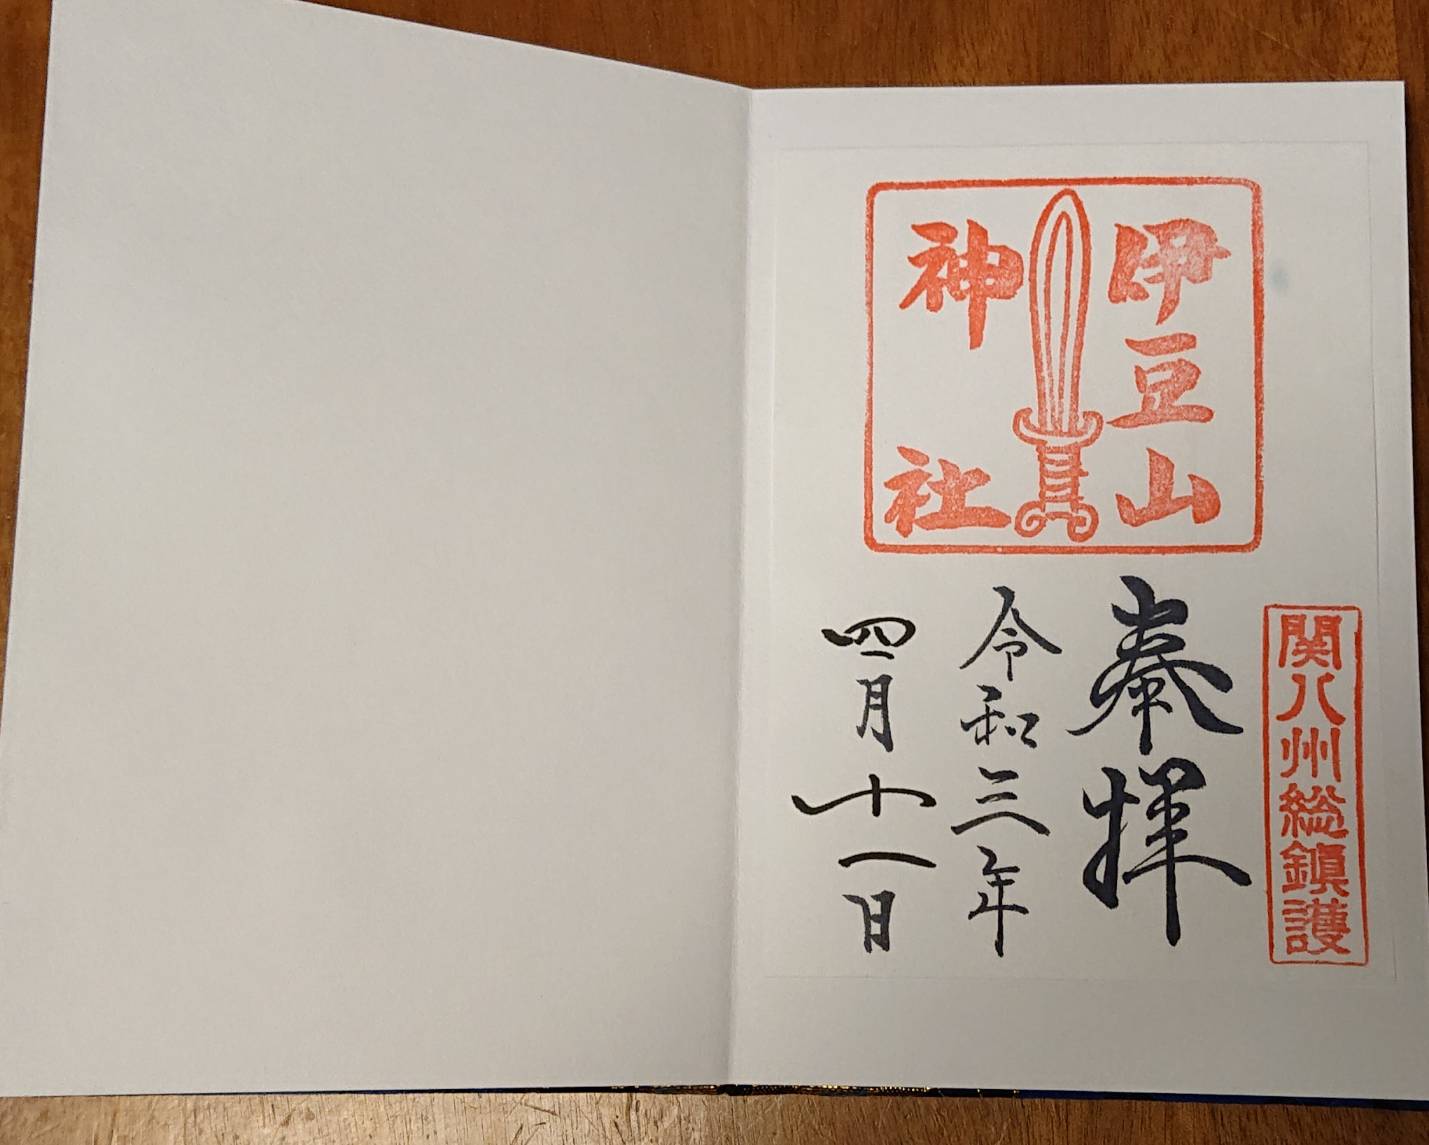 伊豆山
神社
関八州総鎮護
奉拝
令和三年
四月十一日